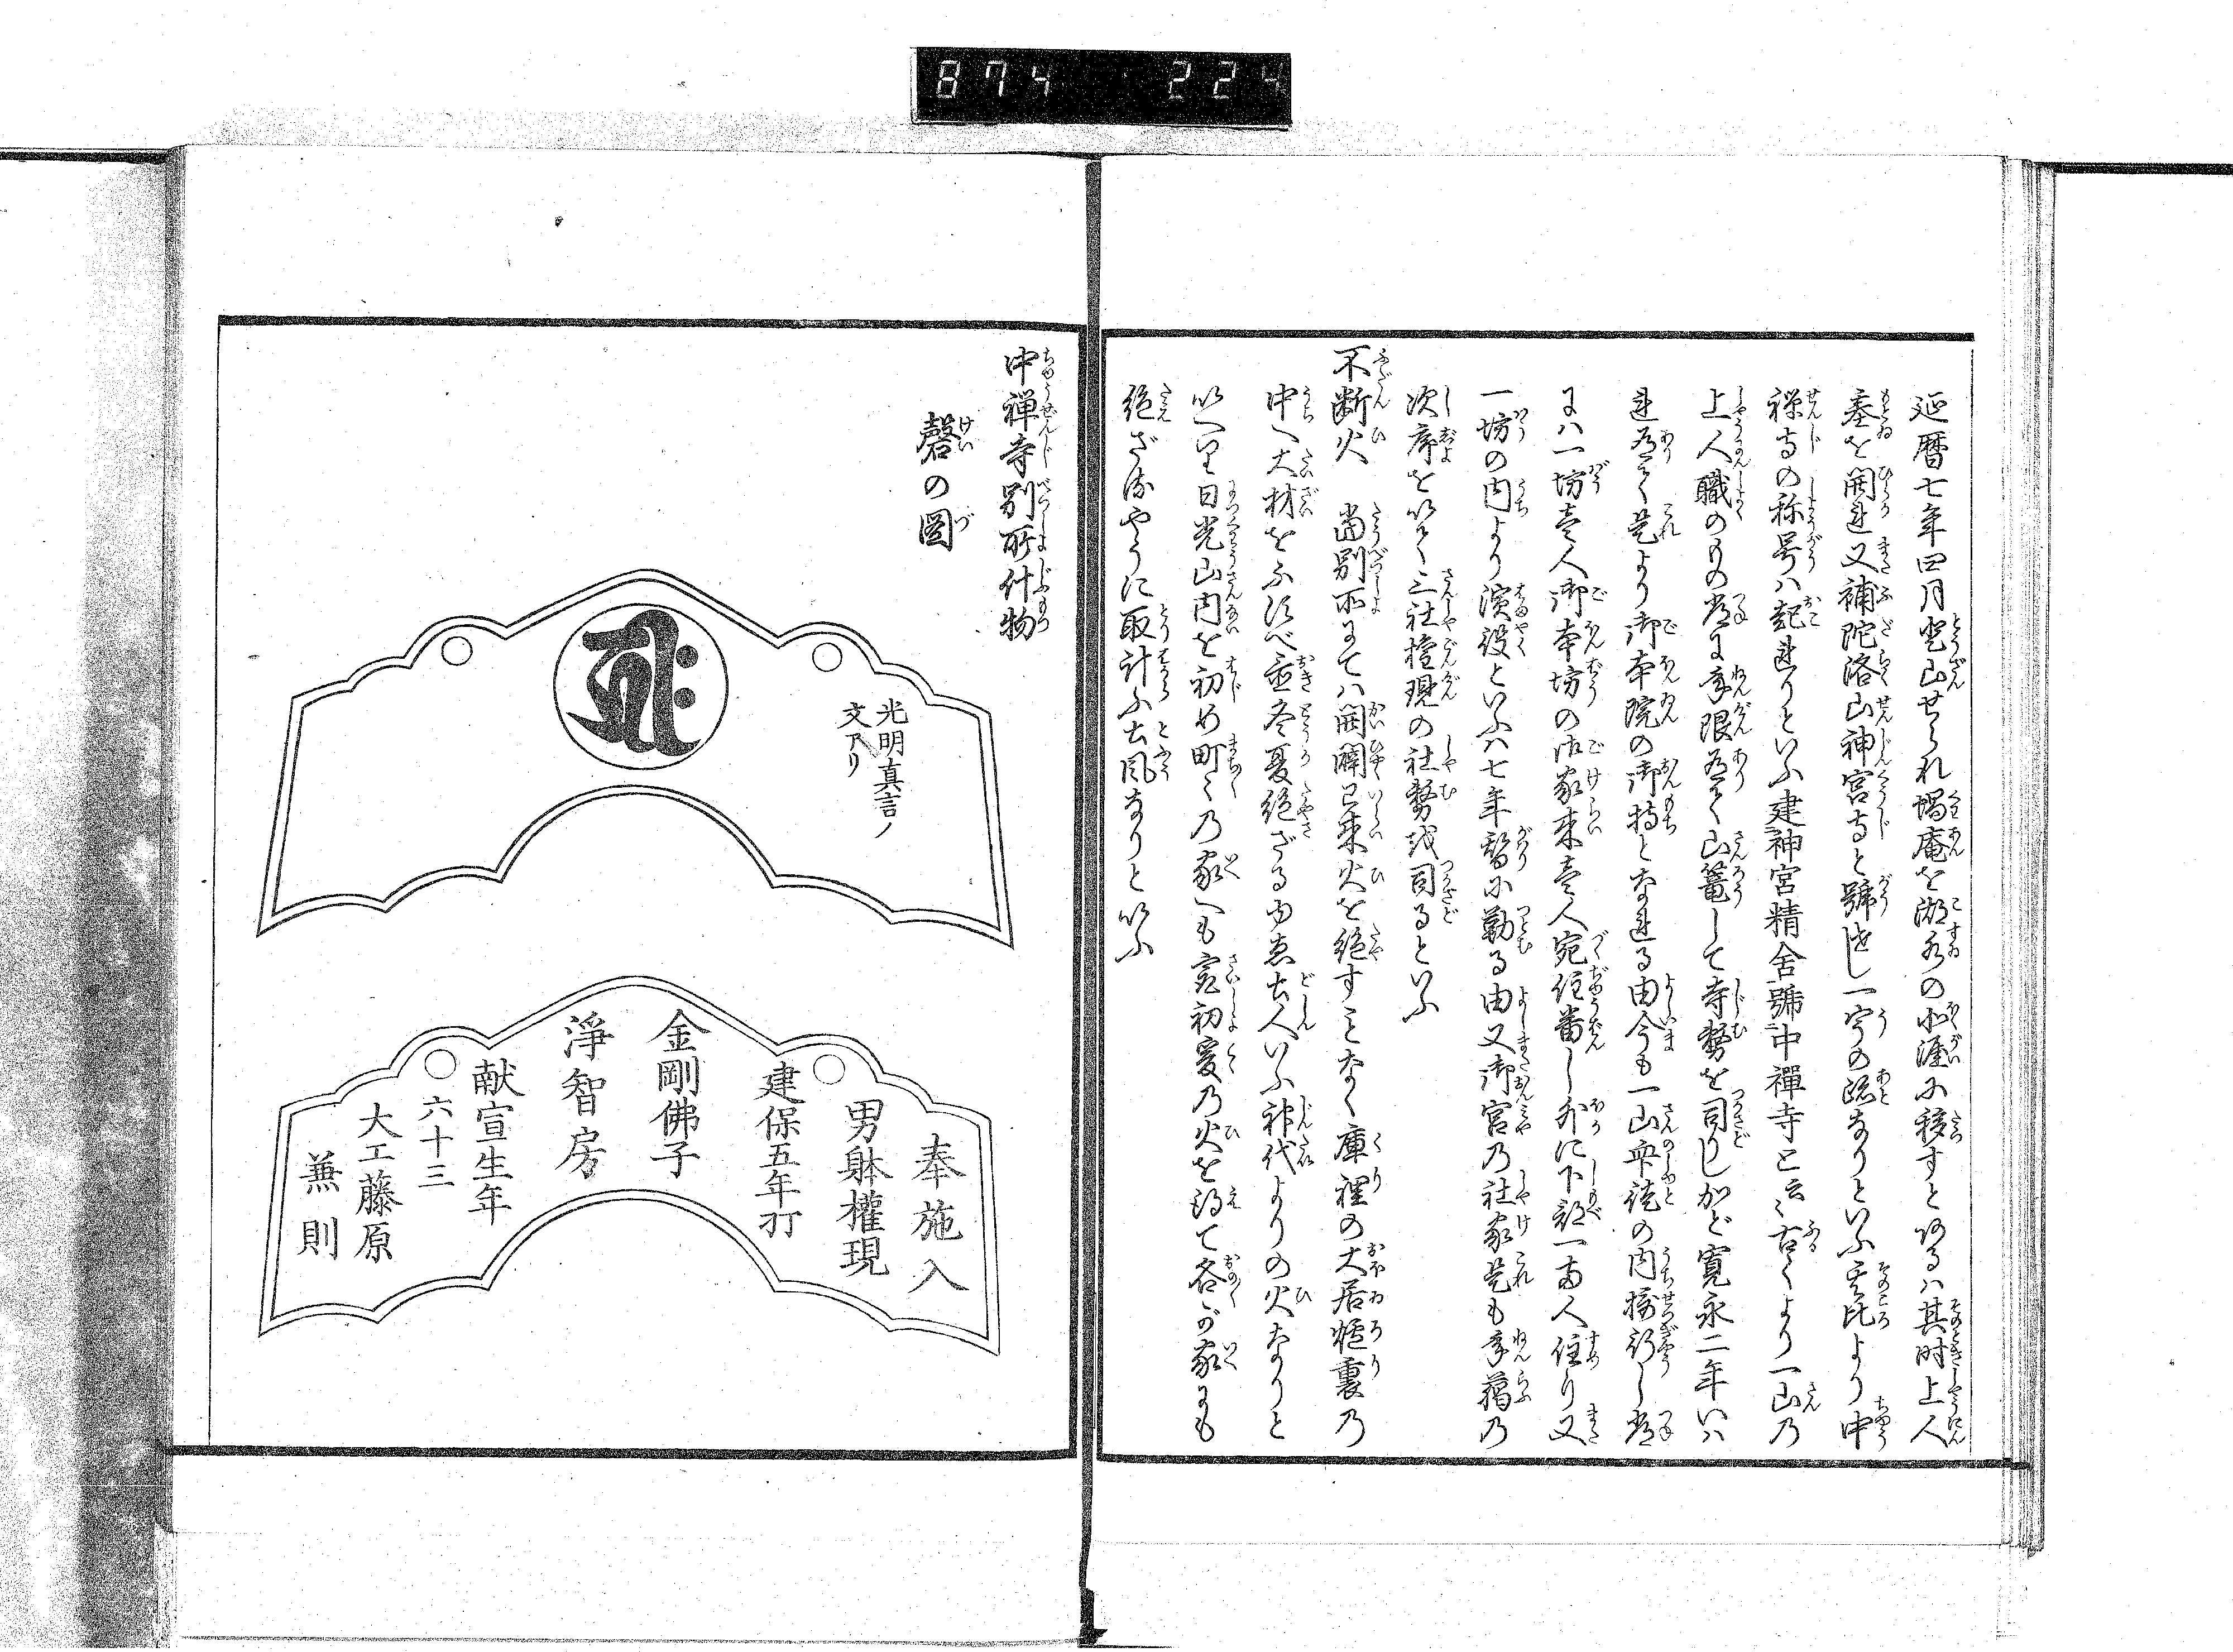 874 224
延暦七年四月登山せられ蝸庵を湖水の北涯に移すとあるハ其時上人
基を開れ又補陀洛山神宮寺と號せし一宇の跡なりといふ其比より中
禅寺の称号ハ起れりといふ建神宮精舎號中禪寺と云〻古くより一山乃
上人職のもの常に年限有て山篭して寺務を司りしかど寛永二年いハ
れ有て是より御本院の御持となれる由今も一山衆徒の内摂行し常
にハ一坊壱人御本坊の御家来壱人宛住番し外に下部一両人住り又
一坊の内より濱役といふハ七年替に勤る由又御宮乃社家是も年﨟乃
次序を以て三社権現の社務を司るといふ
不断火 當別所にてハ開闢已来火を絶すことなく庫裡の大居炉裏乃
中へ大材をふすべ置冬夏絶ざるゆゑ土人いふ神代よりの火なりと
いへり日光山内を初め町々乃家へも最初爰乃火を得て各が家にも
絶ざるやうに取計ふ土風なりといふ
中禅寺別所什物
磬の圖
光明真言ノ
文アリ
奉施入
男躰權現
建保五年打
金剛佛子
淨智房
献宣生年
六十三
大工藤原
兼則